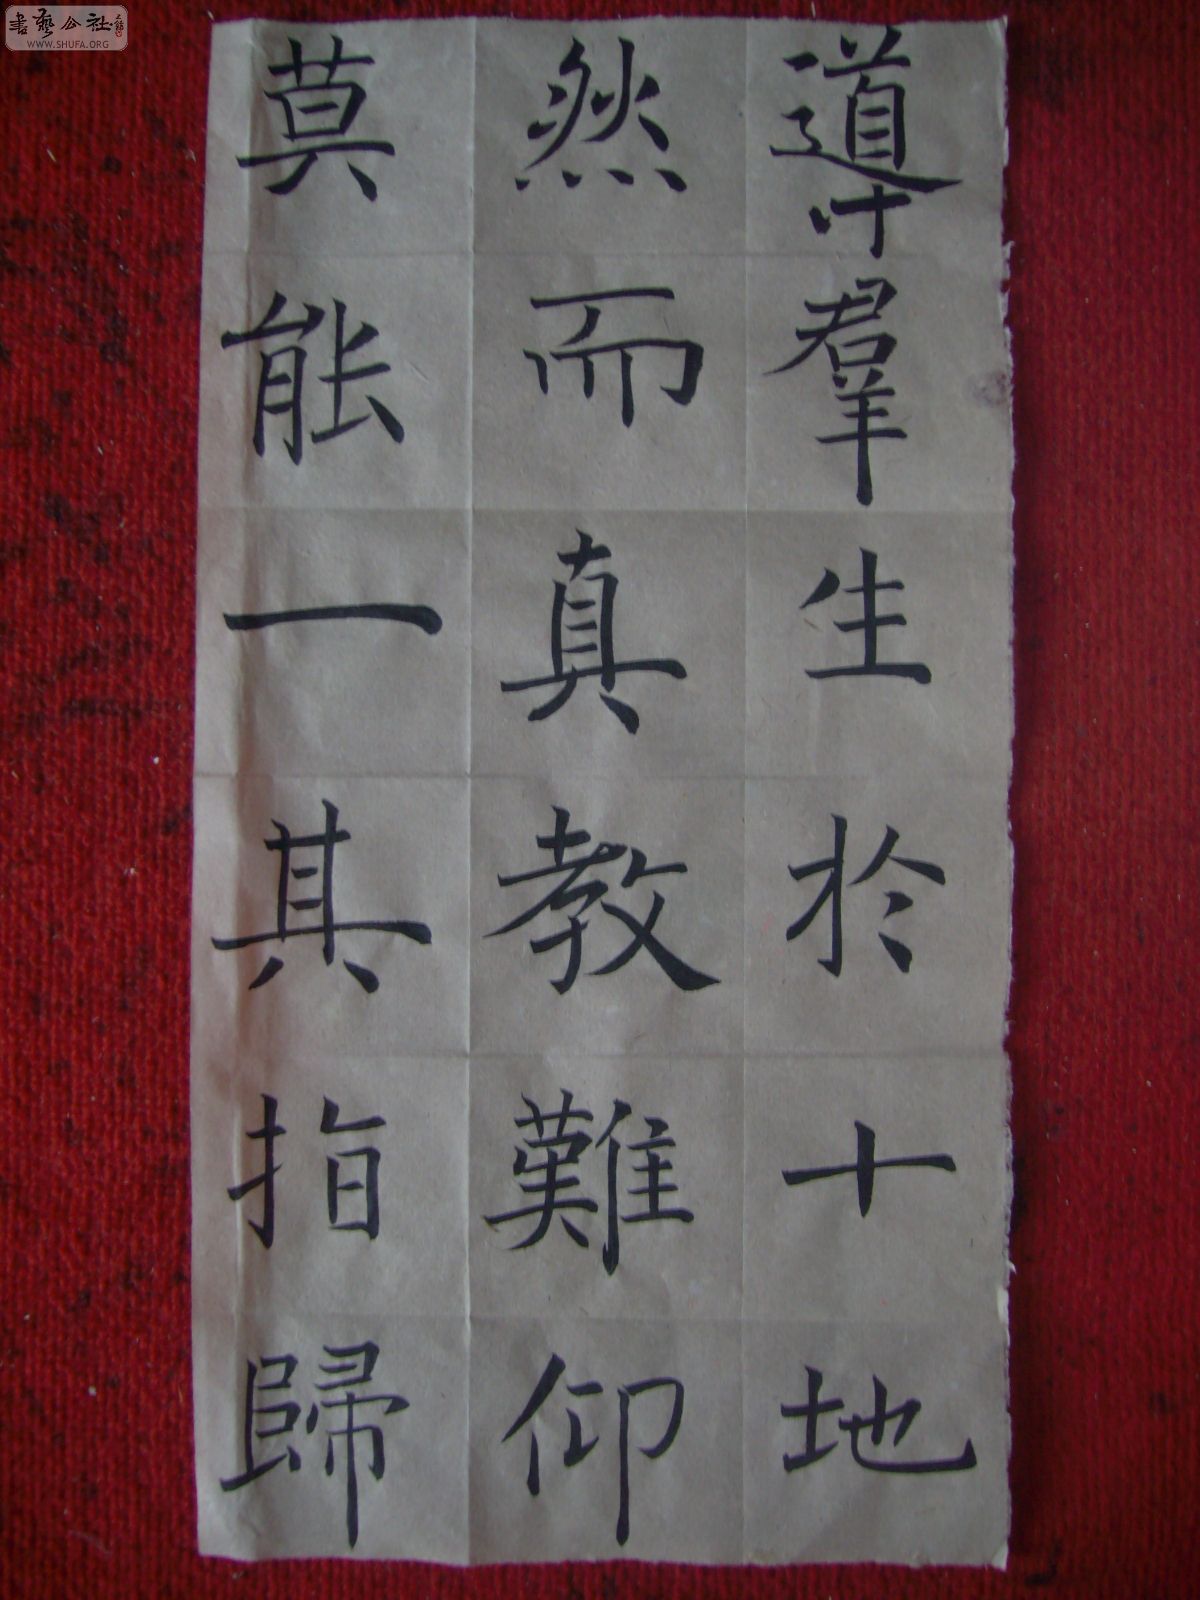 書藝公社
WWW.SHUFA.ORG
導羣生於十地
然而真教難仰
莫能一其指歸